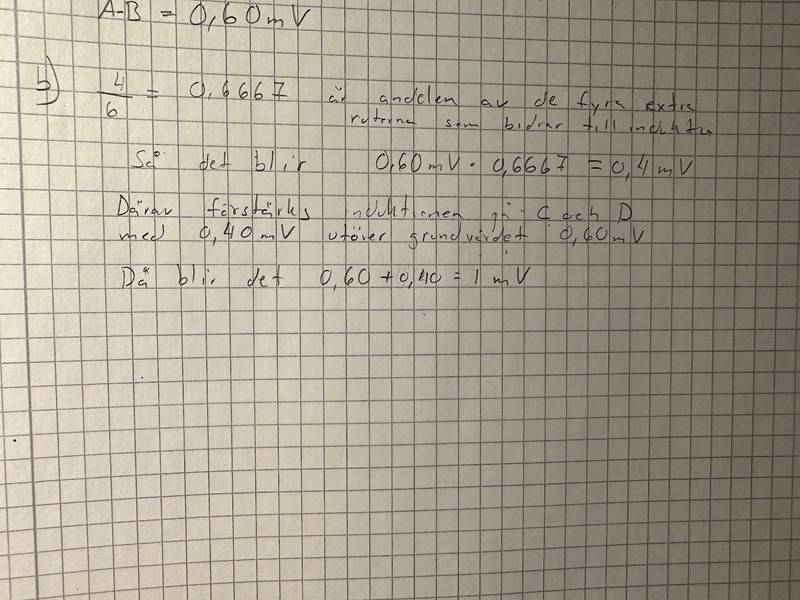 A-B = 0,60 mV
b) 4/6 = 0,6667 är andelen av de fyra extra
rutorna som bidrar till
Så det blir 0,60 mV · 0,6667 = 0,4 mV
Därav förstärks på C och D
med 0,40 mV utöver grundvärdet 0,60 mV
Då blir det 0,60 + 0,40 = 1 mV